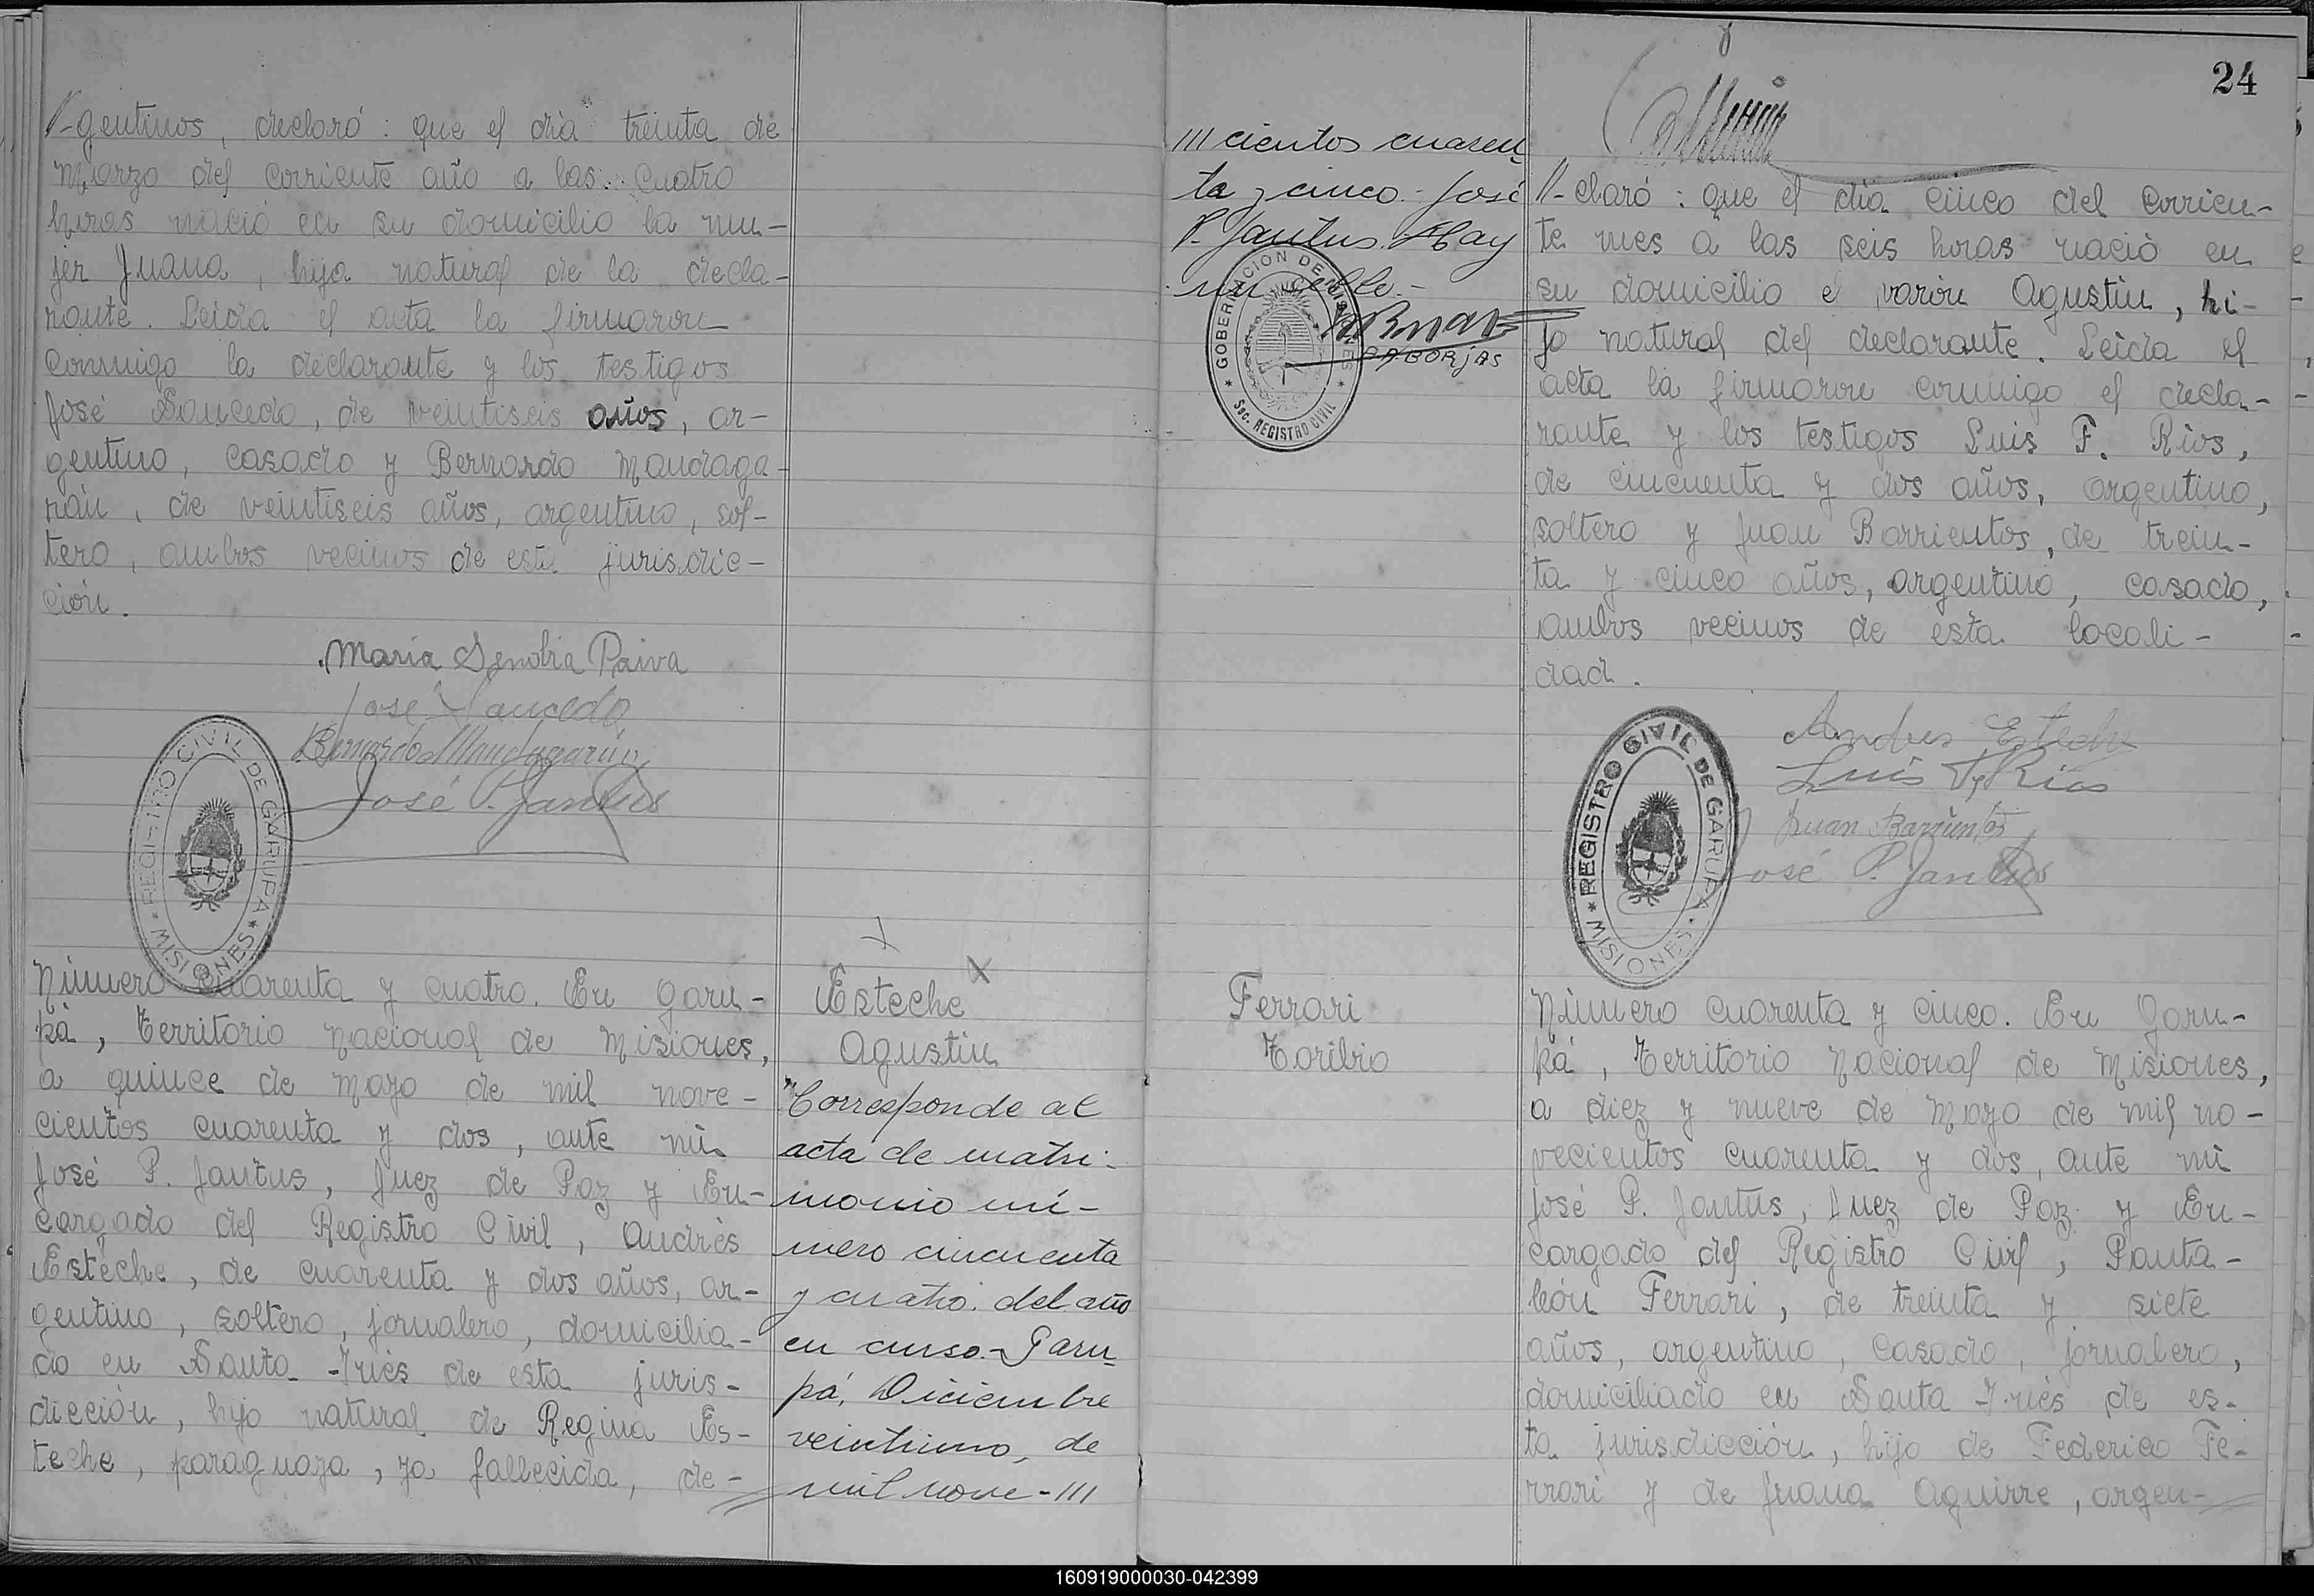 -gentinos, declaró: que el día treinta de
marzo del corriente año a las cuatro
horas nació en su domicilio la mu-
jer Juana, hija natural de la decla-
rante. Leída el acta la firmaron
conmigo la declarante y los testigos
José Saucedo, de veintiseis años, ar-
gentino, casado y Bernardo Mandaga-
rán, de veintiseis años, argentino, sol-
tero, ambos vecinos de esta jurisdic-
ción.
María Senobia Paiva
José Saucedo
Bernardo Mandagarán
José P. Jantus
REGISTRO CIVIL DE GARUPA
* MISIONES *
Número cuarenta y cuatro. En Garu-
pá, Territorio Nacional de Misiones,
a quince de mayo de mil nove-
cientos cuarenta y dos, ante mí
José P. Jantus, Juez de Paz y En-
cargado del Registro Civil, Andrés
Esteche, de cuarenta y dos años, ar-
gentino, soltero, jornalero, domicilia-
do en Santa Inés de esta juris-
dicción, hijo natural de Regina Es-
teche, paraguaya, ya fallecida, de-
Esteche
Agustín
"Corresponde al
acta de matri-
monio nú-
mero cincuenta
y cuatro del año
en curso.- Garu-
pá, Diciembre
veintiuno, de
mil nove-///
/// cientos cuaren-
ta y cinco.- José
P. Jantus. Hay
un sello.-
GOBERNACION DE MISIONES
* Sec. REGISTRO CIVIL *
BORJAS
Ferrari
Toribio
24
-claró: que el día cinco del corrien-
te mes a las seis horas nació en
su domicilio el varón Agustín, hi-
jo natural del declarante. Leída el
acta la firmaron conmigo el decla-
rante y los testigos Luis F. Ríos,
de cincuenta y dos años, argentino,
soltero y Juan Barrientos, de trein-
ta y cinco años, argentino, casado,
ambos vecinos de esta locali-
dad.
Andres Esteche
Luis F. Rios
Juan Barrientos
José P. Jantus
REGISTRO CIVIL DE GARUPA
* MISIONES *
Número cuarenta y cinco. En Garu-
pá, Territorio Nacional de Misiones,
a diez y nueve de mayo de mil no-
vecientos cuarenta y dos, ante mí
José P. Jantus, Juez de Paz y En-
cargado del Registro Civil, Panta-
león Ferrari, de treinta y siete
años, argentino, casado, jornalero,
domiciliado en Santa Inés de es-
ta jurisdicción, hijo de Federico Fe-
rrari y de Juana Aguirre, argen-
160919000030-042399